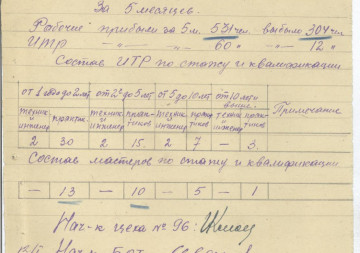 За 5 месяцев.
Рабочие прибыли за 5 м. 531 чел. выбыло 304 чел.
ИТР —"— —"— 60 " —"— 12 "
Состав ИТР по стажу и квалификации
от 1 до 2 лет от 2х до 5 лет от 5 до 10 лет от 10 лет и выше. Примечание
техник и инженер практик. техник и инженер практиков техник. инженер практиков техник инженер практиков
2 30 2 15. 2 7 — 3.
Состав мастеров по стажу и квалификации
— 13 — 10 — 5 — 1
Нач-к цеха № 96:
Нач-к